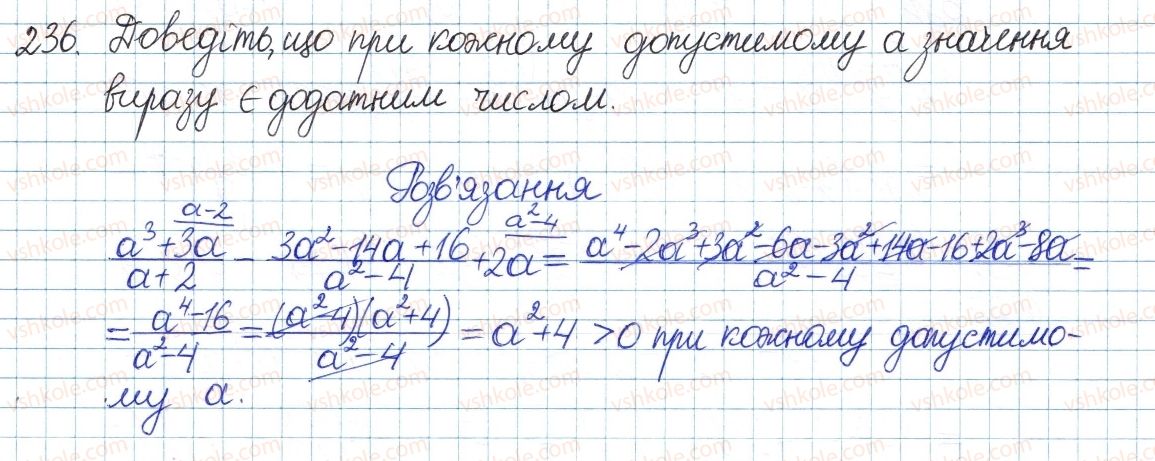 236. Доведіть, що при кожному допустимому а значення
виразу є додатним числом.
Розв'язання
(a³+3a)/(a+2) ^(a-2) - (3a²-14a+16)/(a²-4) + 2a ^(a²-4) = (a⁴-2a³+3a²-6a-3a²+14a-16+2a³-8a)/(a²-4) =
= (a⁴-16)/(a²-4) = ((a²-4)(a²+4))/(a²-4) = a²+4 >0 при кожному допустимо-
му а.